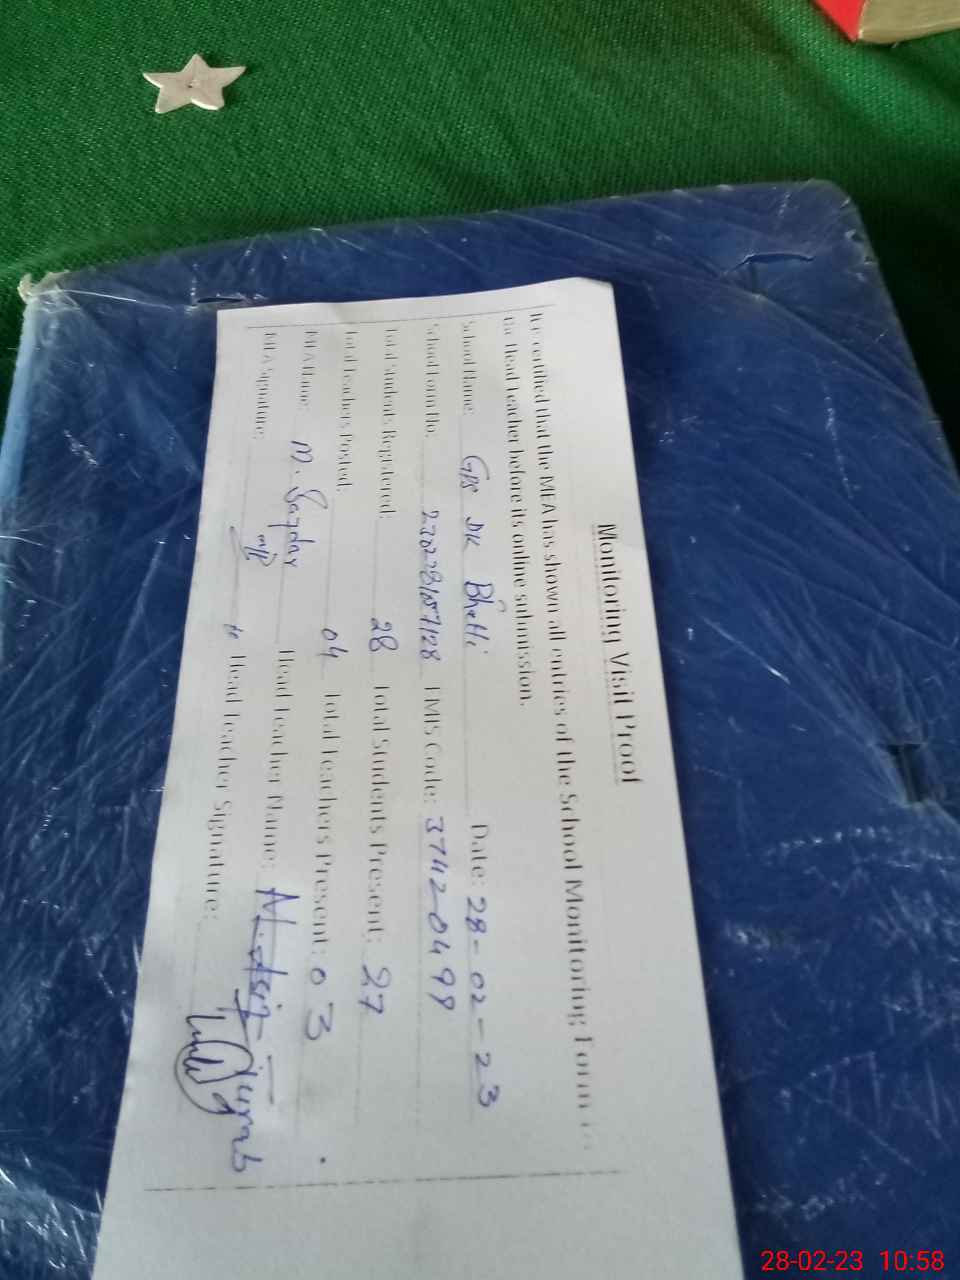 Monitoring Visit Proof
It is certified that the MEA has shown all entries of the School Monitoring Form to
the Head Teacher before its online submission.
School Name: GPS DK Bhatti Date: 28-02-23
School Form No: EMIS Code: 37420499
Total Students Registered: 28 Total Students Present: 27
Total Teachers Posted: 04 Total Teachers Present: 03
MEA Name: M. Head Teacher Name:
MEA Signature: Head Teacher Signature:
28-02-23 10:58